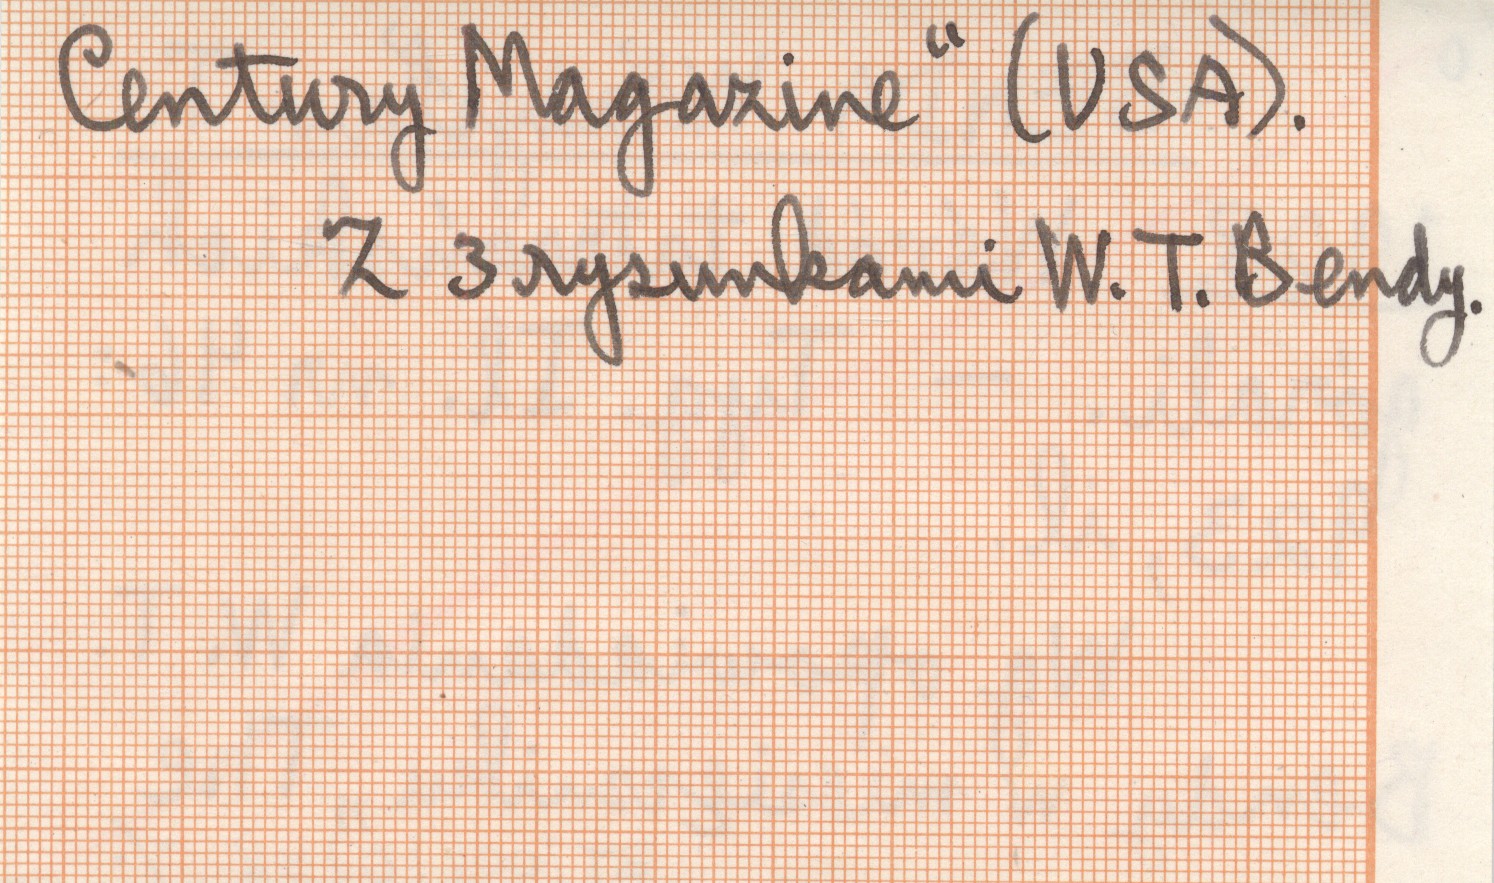 Century Magazine“ (USA).
Z 3 rysunkami W. T. Bendy.